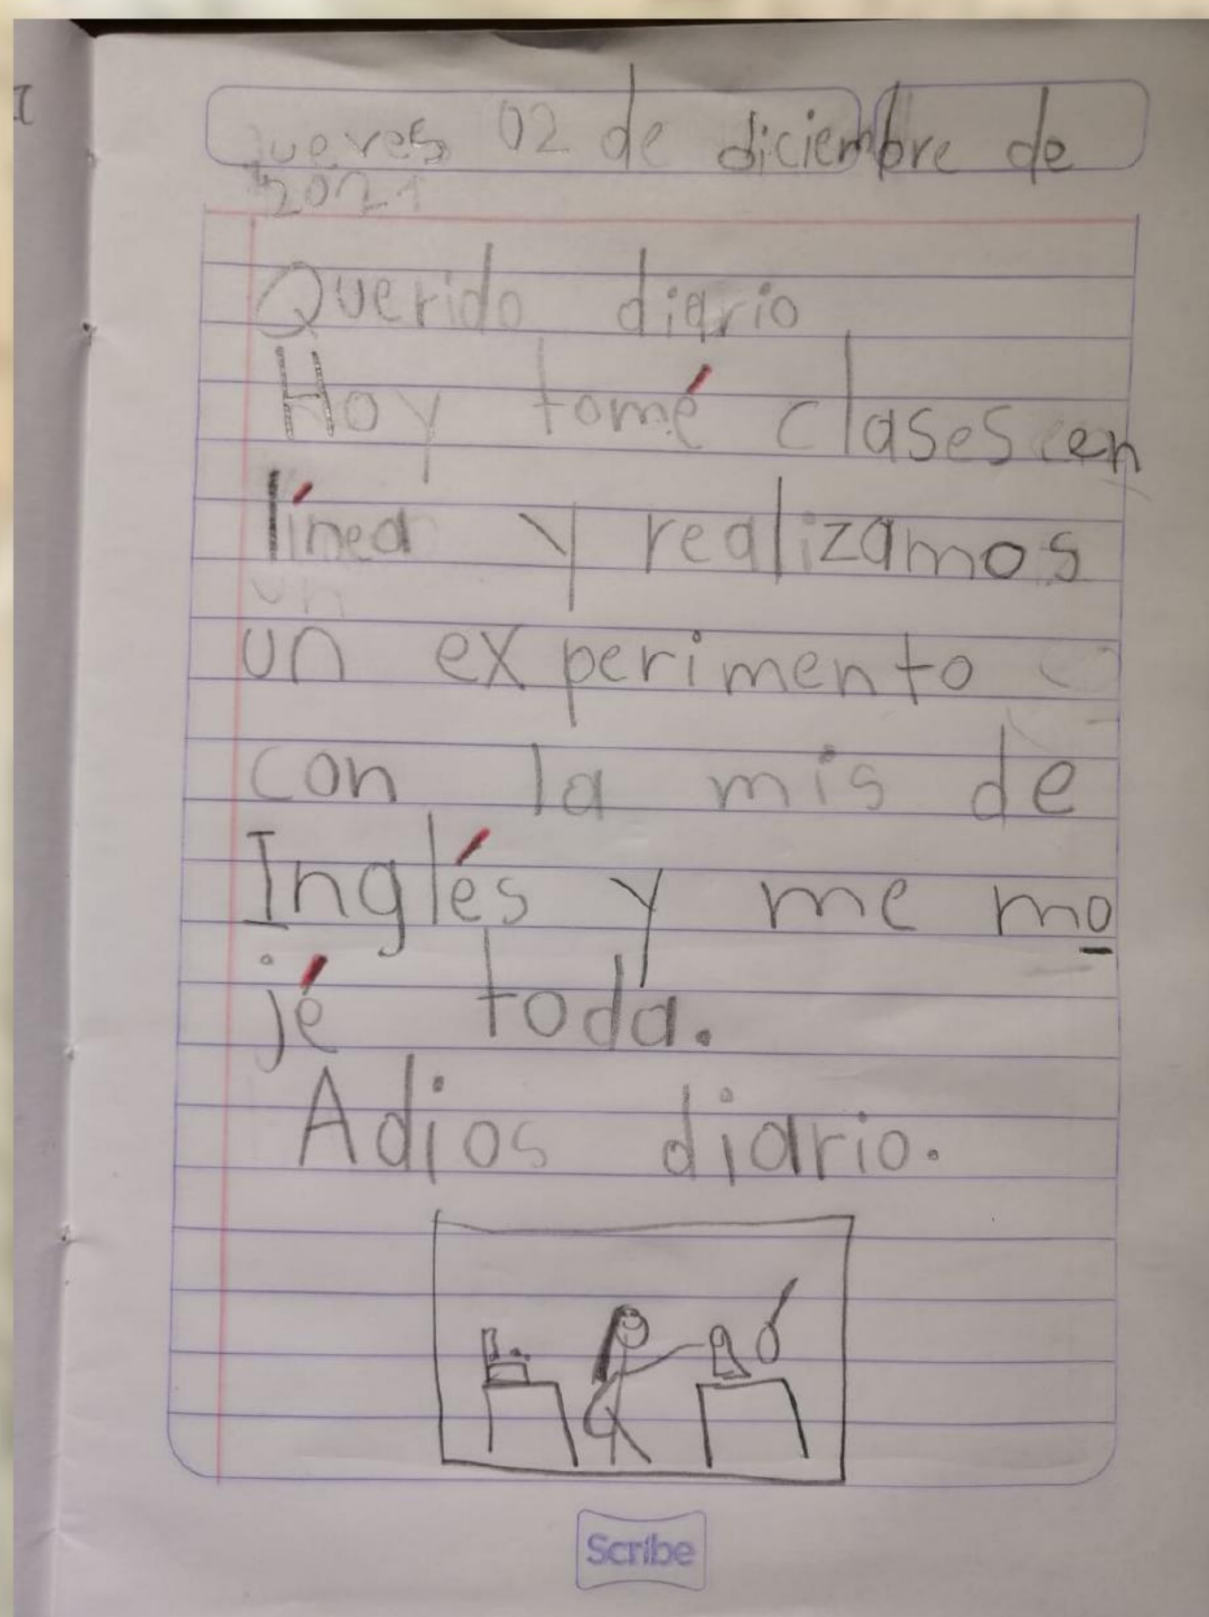 I
jueves 02 de diciembre de
2021
Querido diario
Hoy tomé clases en
línea y realizamos
un
un experimento
con la mis de
Inglés y me mo
jé toda.
Adios diario.
Scribe